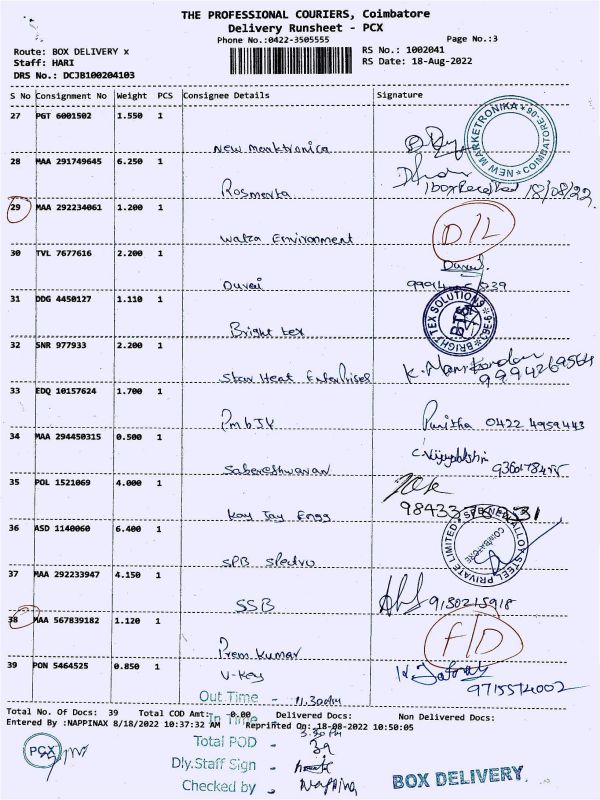 THE PROFESSIONAL COURIERS, Coimbatore
Delivery Runsheet - PCX
Phone No.:0422-3505555
Page No.:3
Route: BOX DELIVERY x
RS No.: 1002041
Staff: HARI
RS Date: 18-Aug-2022
DRS No.: DCJB100204103
S No Consignment No Weight PCS Consignee Details Signature
27 PGT 6001502 1.550 1
New Marktronica
NEW MARKETRONIKA COIMBATORE-
28 MAA 291749645 6.250 1
Rosmerta
1 box Received 18/08/22
29 MAA 292234061 1.200 1
Environment
D/L
30 TVL 7677616 2.200 1
Durai
31 DDG 4450127 1.110 1
Bright tex
BRIGHT TEX SOLUTIONS
BTS
32 SNR 977933 2.200 1
Star Heat Enterprises
K. Manikandan
9994269564
33 EDQ 10157624 1.700 1
Punitha 0422 4959443
34 MAA 294450315 0.500 1
Sabareshwaran
35 POL 1521069 4.000 1
Kay Jay Engg
98433
36 ASD 1140060 6.400 1
SPB
PRIVATE LIMITED
ALLOY STEEL
COIMBATORE
37 MAA 292233947 4.150 1
SSB
9150215918
38 MAA 567839182 1.120 1
Prem Kumar
F/D
39 PON 5464525 0.850 1
V-Key
9715574002
Out Time - 11.30AM
Total No. Of Docs: 39 Total COD Amt: 0.00 Delivered Docs: Non Delivered Docs:
In Time
Entered By :NAPPINAX 8/18/2022 10:37:32 AM Reprinted On: 18-08-2022 10:50:05
PCX
Total POD - 39
Dly.Staff Sign -
Checked by - Nappina
BOX DELIVERY